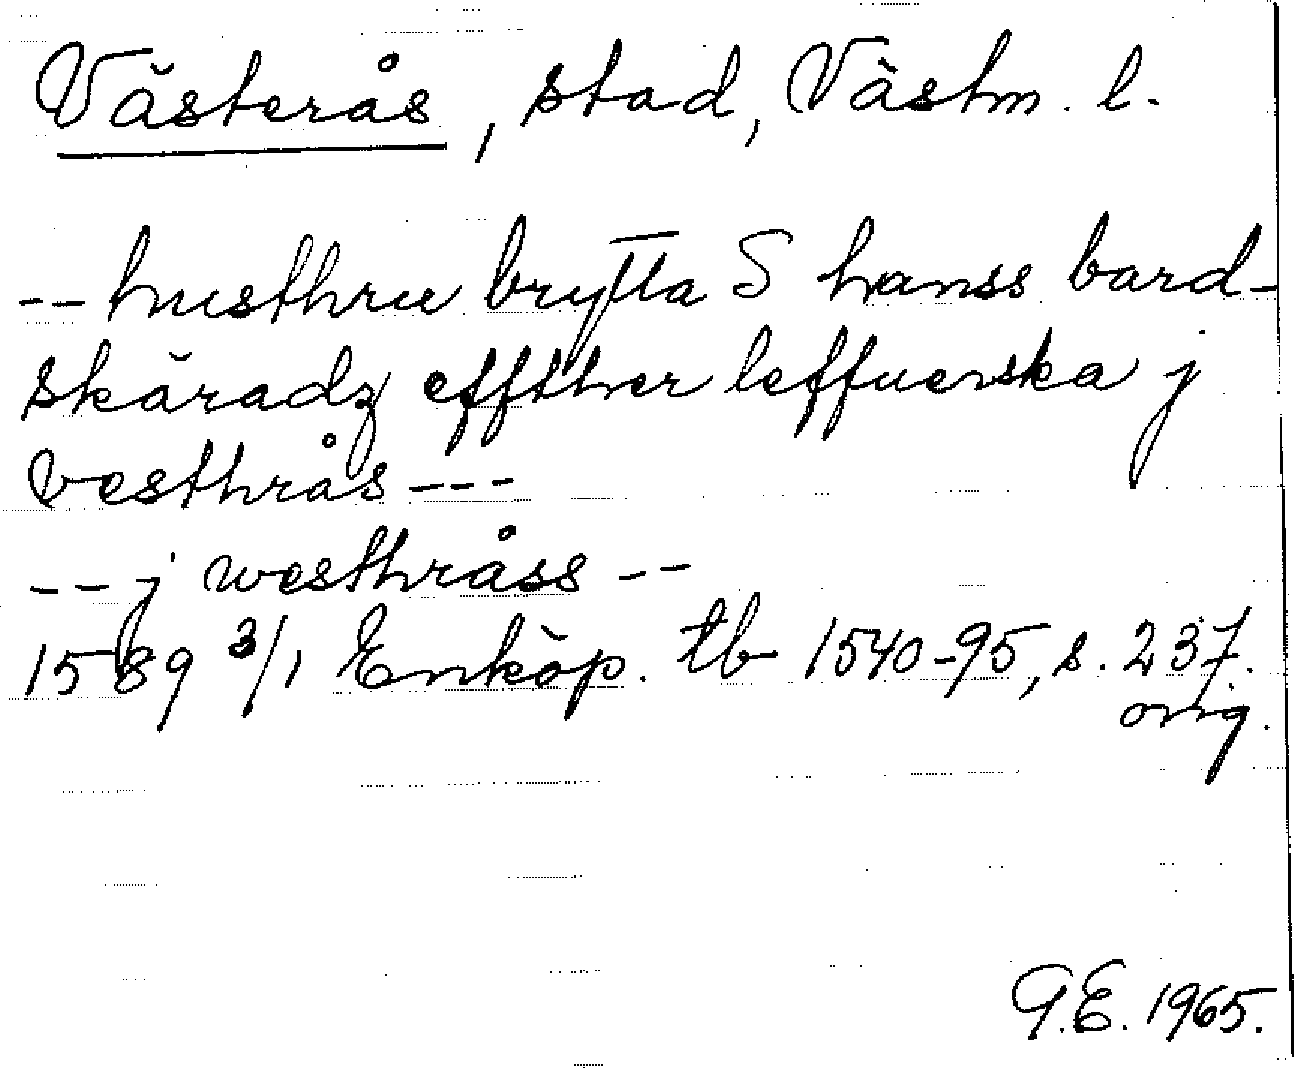 Västerås, stad, Västm. l.
-- husthru brytta S hanss bard-
skäradz effther leffuerska j
vesthrås ---
-- j westhråss --
1589 3/1 Enköp. tb 1540-95, s. 237.
orig.
G.E. 1965.